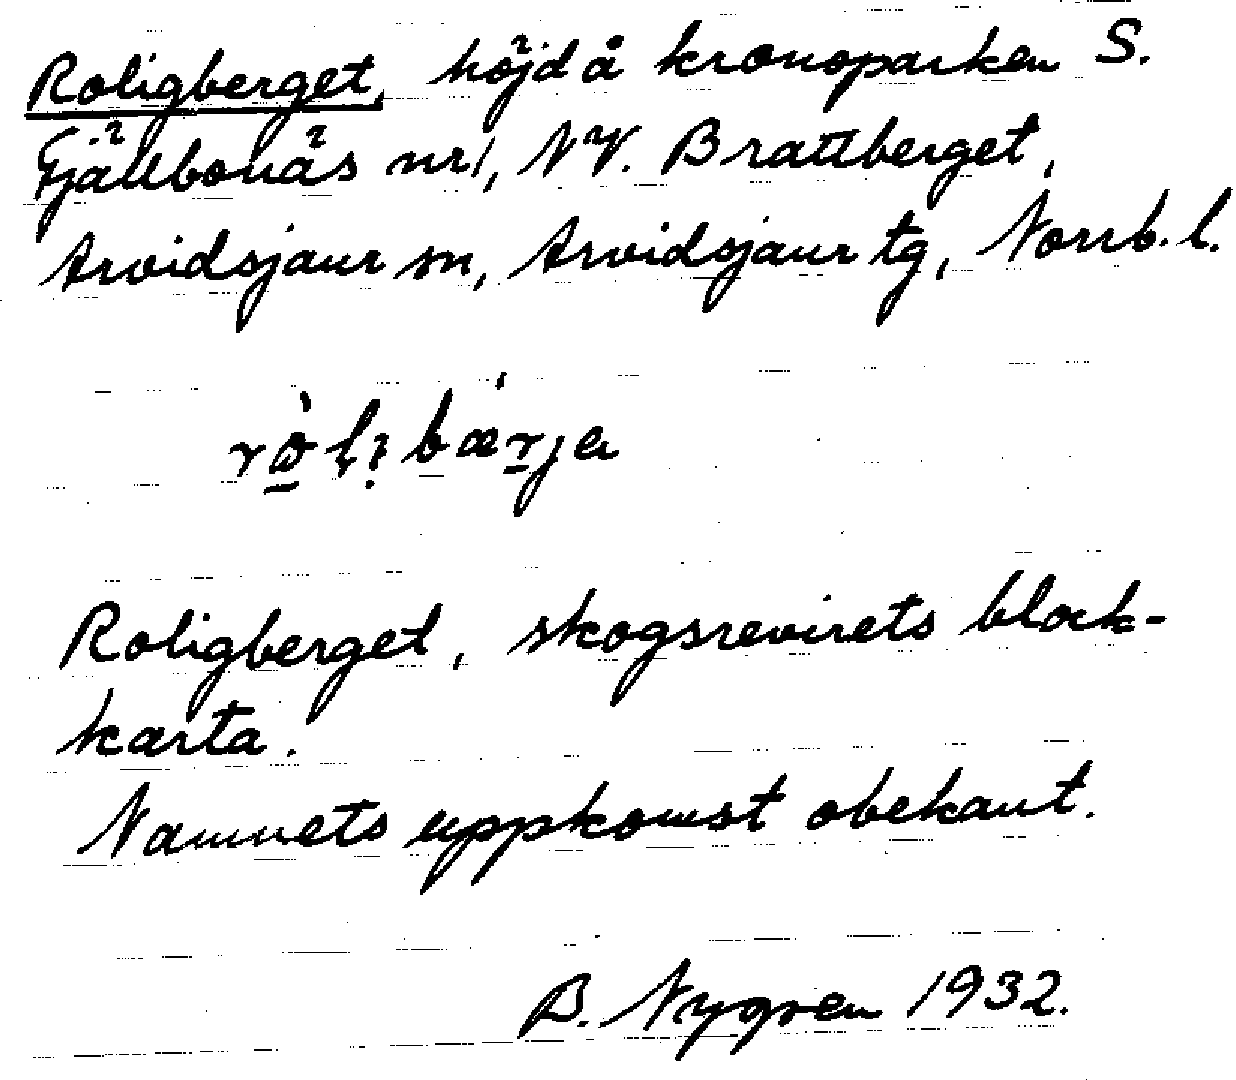 Roligberget, höjd å kronoparken S.
Fjällbonäs nr 1, NV. Brattberget,
Arvidsjaur sn, Arvidsjaur tg, Norrb. l.
Roligberget, skogsrevirets block-
karta.
Namnets uppkomst obekant.
B. Nygren 1932.